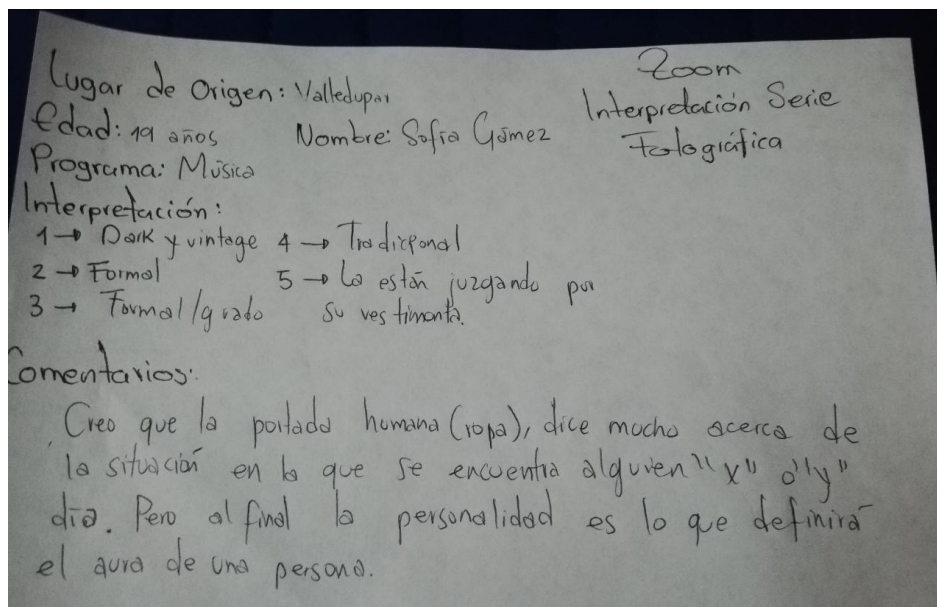 Zoom
Interpretación Serie
Fotográfica
Lugar de Origen: Valledupar
Edad: 19 años Nombre: Sofía Gómez
Programa: Música
Interpretación:
1 → Dark y vintage 4 → Tradicional
2 → Formal 5 → La están juzgando por
3 → Formal/grado su vestimenta.
Comentarios:
Creo que la portada humana (ropa), dice mucho acerca de
la situación en la que se encuentra alguien "x" o "y"
día. Pero al final la personalidad es lo que definirá
el aura de una persona.